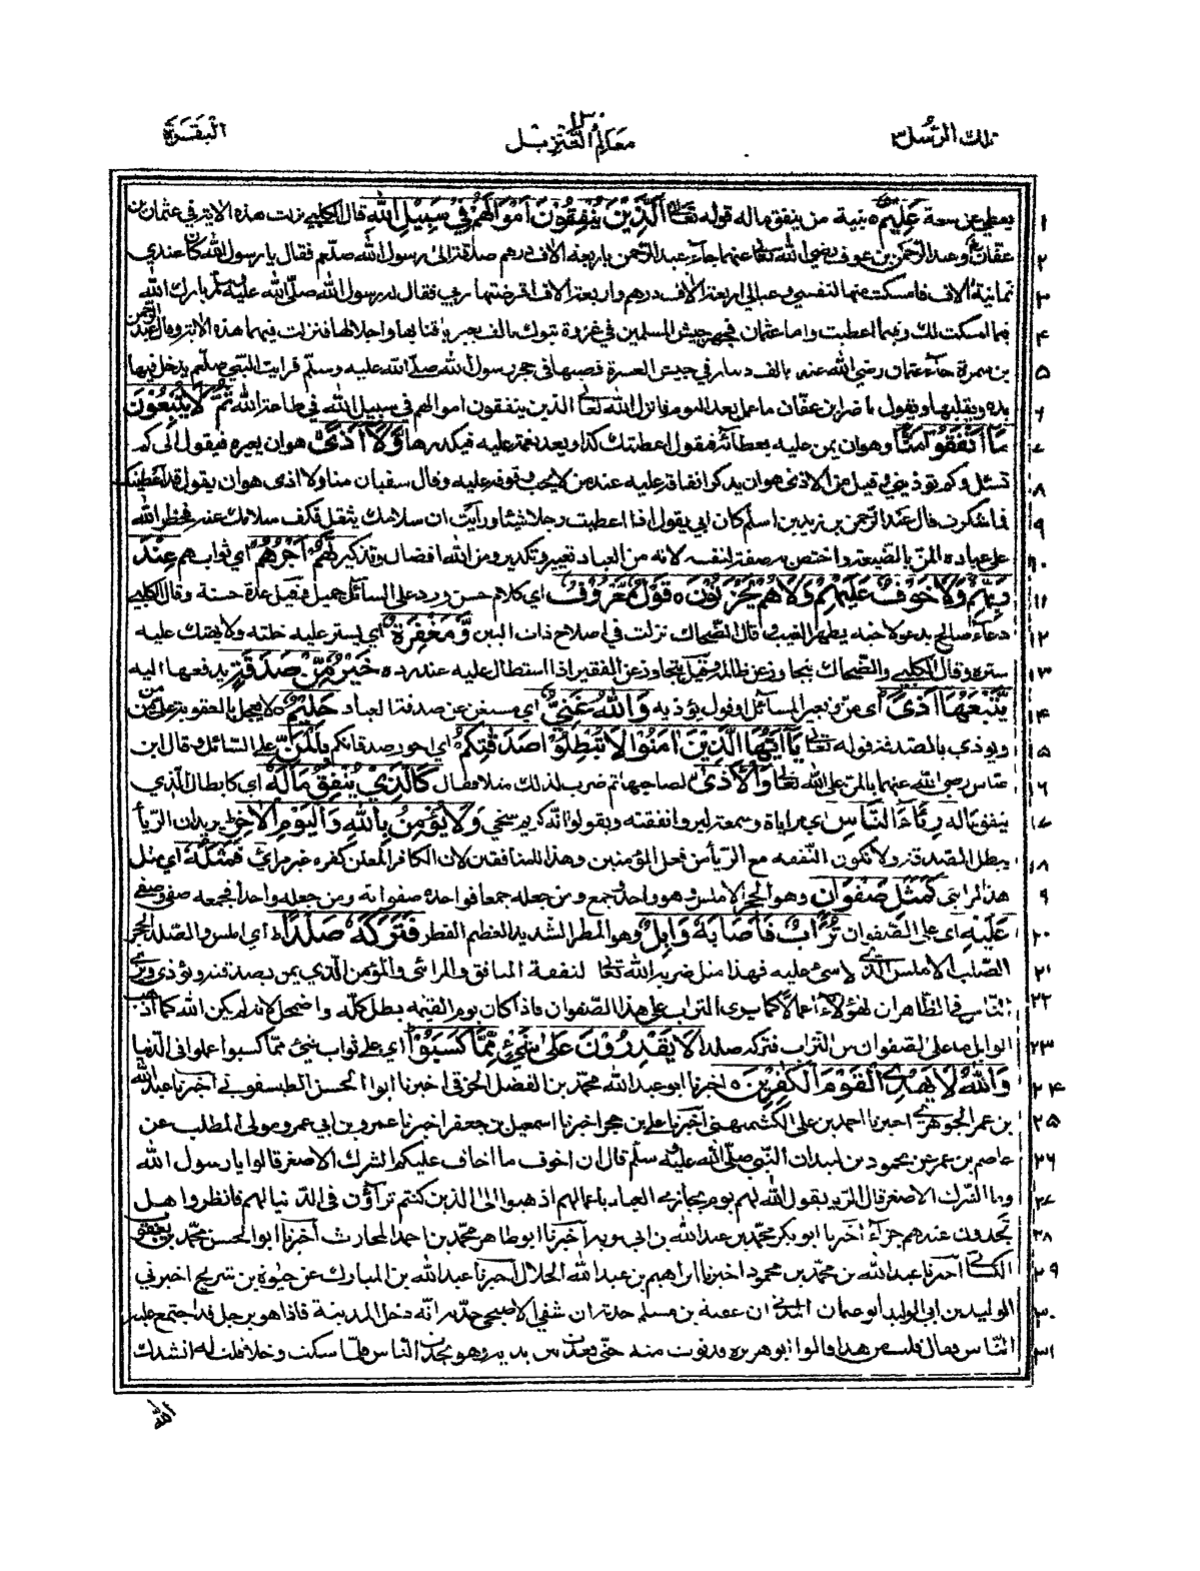 تلك الرسل ٣ ١٣٠ معالم التنزيل البقرة
١ يعطي عن سعة عَلِيمٌ بنية من ينفق ماله قوله تعالى اَلَّذِيْنَ يُنْفِقُوْنَ اَمْوَالَهُمْ فِيْ سَبِيْلِ اللهِ قال الكلبي نزلت هذه الاية في عثمان بن
٢ عفان وعبد الرحمن بن عوف رضي الله تعالى عنهما جاء عبد الرحمن باربعة الاف درهم صدقة الى رسول الله صلعم فقال يا رسول الله كان عندي
٣ ثمانية الاف فامسكت منها لنفسي وعيالي اربعة الاف درهم واربعة الاف اقرضتها ربي فقال له رسول الله صلى الله عليه وسلم بارك الله
٤ فيما امسكت لك وفيما اعطيت واما عثمان فجهز جيش المسلمين في غزوة تبوك بالف بعير باقتابها واحلاسها فنزلت فيهما هذه الاية وقال عبد الرحمن
٥ بن سمرة جاء عثمان رضي الله عنه بالف دينار في جيش العسرة فصبها في حجر رسول الله صلى الله عليه وسلم فرايت النبي صلعم يدخل فيها
٦ يده ويقلبها ويقول ما ضر ابن عفان ما عمل بعد اليوم فانزل الله تعالى الذين ينفقون اموالهم في سبيل الله في طاعة الله ثُمَّ لَا يُتْبِعُوْنَ
٧ مَا اَنْفَقُوْا مَنًّا وهو ان يمن عليه بعطائه فيقول اعطيتك كذا ويعد نعمه عليه فيكدرها وَلَا اَذًى هو ان يعيره فيقول الى كم
٨ تسئل وكم تؤذيني وقيل من الاذى هو ان يذكر انفاقه عليه عند من لا يحب وقوفه عليه وقال سفيان منا ولا اذى هو ان يقول قد اعطيتك
٩ فما شكرت قال عبد الرحمن بن زيد بن اسلم كان ابي يقول اذا اعطيت رجلا شيئا ورايت ان سلامك يثقل فكف سلامك عنه فحظر الله
١٠ على عباده المن بالصنيعة واختص به صفة لنفسه لانه من العباد تعيير وتكدير ومن الله افضال وتذكير لَهُمْ اَجْرُهُمْ اي ثوابهم عِنْدَ
١١ رَبِّهِمْ وَلَا خَوْفٌ عَلَيْهِمْ وَلَا هُمْ يَحْزَنُوْنَ ه قَوْلٌ مَّعْرُوْفٌ اي كلام حسن ورد على السائل جميل وقيل عدة حسنة وقال الكلبي
١٢ دعاء صالح يدعو لاخيه بظهر الغيب وقال الضحاك نزلت في اصلاح ذات البين وَّمَغْفِرَةٌ اي يستر عليه خلته ولا يهتك عليه
١٣ ستره وقال الكلبي والضحاك يتجاوز عن ظالمه وقيل يتجاوز عن الفقير اذا استطال عليه عند رده خَيْرٌ مِّنْ صَدَقَةٍ يدفعها اليه
١٤ يَّتْبَعُهَا اَذًى اي من وتعيير السائل او قول يؤذيه وَاللهُ غَنِيٌّ اي مستغن عن صدقة العباد حَلِيْمٌ ه لا يعجل بالعقوبة على من يمن
١٥ ويؤذي بالصدقة قوله تعالى يٰاَيُّهَا الَّذِيْنَ اٰمَنُوْا لَا تُبْطِلُوْا صَدَقٰتِكُمْ اي اجور صدقاتكم بِالْمَنِّ على السائل وقال ابن
١٦ عباس رضي الله عنهما بالمن على الله تعالى وَالْاَذٰى لصاحبها ثم ضرب لذلك مثلا فقال كَالَّذِيْ يُنْفِقُ مَالَهُ اي كابطال الذي
١٧ ينفق ماله رِئَاءَ النَّاسِ اي مراياة وسمعة ليروا نفقته ويقولوا انه كريم سخي وَلَا يُؤْمِنُ بِاللهِ وَالْيَوْمِ الْاٰخِرِ يريد ان الريا
١٨ يبطل الصدقة ولا تكون النفقة مع الريا من فعل المؤمنين وهذا للمنافقين لان الكافر المعلن كفره غير مرائي فَمَثَلُهُ اي مثل
١٩ هذا المرائي كَمَثَلِ صَفْوَانٍ وهو الحجر الاملس وهو واحد وجمع فمن جعله جمعا فواحده صفوانة ومن جعله واحدا فجمعه صفي وصفي
٢٠ عَلَيْهِ اي على الصفوان تُرَابٌ فَاَصَابَهُ وَابِلٌ وهو المطر الشديد العظيم القطر فَتَرَكَهُ صَلْدًا ط اي املس والصلد الحجر
٢١ الصلب الاملس الذي لا شيء عليه فهذا مثل ضربه الله تعالى لنفقة المنافق والمرائي والمؤمن الذي يمن بصدقته ويؤذي ويري
٢٢ الناس في الظاهر ان لهؤلاء اعمالا كما يرى التراب على هذا الصفوان فاذا كان يوم القيمة بطل كله واضمحل لانه لم يكن لله كما اذهب
٢٣ الوابل ما على الصفوان من التراب فتركه صلدا لَا يَقْدِرُوْنَ عَلٰى شَيْءٍ مِّمَّا كَسَبُوْا اي على ثواب شيء مما كسبوا عملوا في الدنيا
٢٤ وَاللهُ لَا يَهْدِي الْقَوْمَ الْكٰفِرِيْنَ ه اخبرنا ابو عبد الله محمد بن الفضل الخرقي اخبرنا ابو الحسن الطيسفوني اخبرنا عبد الله
٢٥ بن عمر الجوهري اخبرنا احمد بن علي الكشميهني اخبرنا علي بن حجر اخبرنا اسمعيل بن جعفر اخبرنا عمرو بن ابي عمرو مولى المطلب عن
٢٦ عاصم بن عمر عن محمود بن لبيد ان النبي صلى الله عليه وسلم قال ان اخوف ما اخاف عليكم الشرك الاصغر قالوا يا رسول الله
٢٧ وما الشرك الاصغر قال الريا يقول الله لهم يوم يجازي العباد باعمالهم اذهبوا الى الذين كنتم تراؤن في الدنيا لهم فانظروا هل
٢٨ تجدون عندهم جزاء اخبرنا ابو بكر محمد بن عبد الله بن ابي توبة اخبرنا ابو طاهر محمد بن احمد الحارث اخبرنا ابو الحسن محمد بن يعقوب
٢٩ الكسائي اخبرنا عبد الله بن محمد بن محمود اخبرنا ابراهيم بن عبد الله الخلال اخبرنا عبد الله بن المبارك عن حيوة بن شريح اخبرني
٣٠ الوليد بن ابي الوليد ابو عثمان المدني ان عقبة بن مسلم حدثه ان شفي الاصبحي حدثه انه دخل المدينة فاذا هو برجل قد اجتمع عليه
٣١ الناس فقال من هذا قالوا ابو هريرة فدنوت منه حتى قعدت بين يديه وهو يحدث الناس فلما سكت وخلا قلت له انشدك
الله